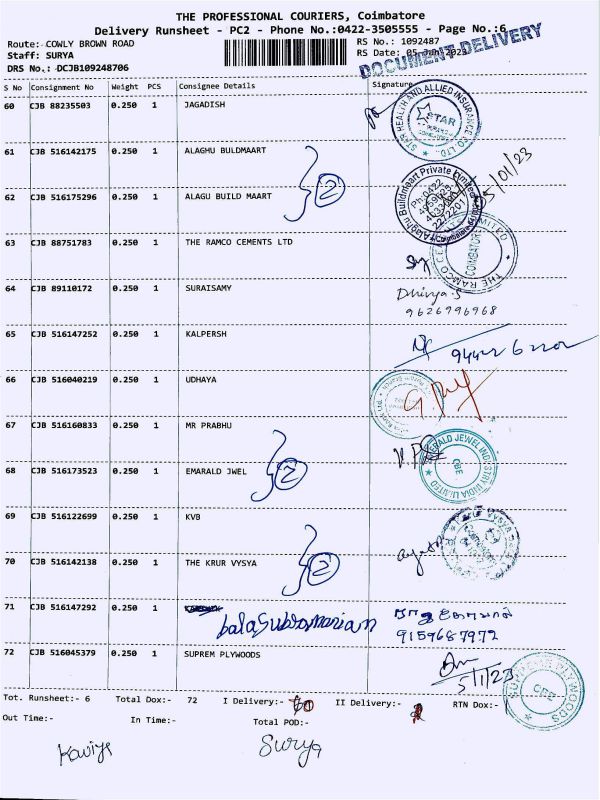 THE PROFESSIONAL COURIERS, Coimbatore
Delivery Runsheet - PC2 - Phone No.:0422-3505555 - Page No.:6
Route:- COWLY BROWN ROAD
RS No.: 1092487
Staff: SURYA
RS Date: 05-Jan-2023
DRS No.: DCJB109248706
DOCUMENT DELIVERY
S No Consignment No Weight PCS Consignee Details Signature
60 CJB 88235503 0.250 1 JAGADISH
STAR HEALTH AND ALLIED INSURANCE CO. LTD.
STAR
61 CJB 516142175 0.250 1 ALAGHU BULDMAART
2
5/01/23
62 CJB 516175296 0.250 1 ALAGU BUILD MAART
Alaghu Buildmaart Private Limited
63 CJB 88751783 0.250 1 THE RAMCO CEMENTS LTD
THE RAMCO CEMENTS LIMITED
COIMBATORE
64 CJB 89110172 0.250 1 SURAISAMY
Dhivya.S
9626996968
65 CJB 516147252 0.250 1 KALPERSH
66 CJB 516040219 0.250 1 UDHAYA
67 CJB 516160833 0.250 1 MR PRABHU
EMERALD JEWEL INDUSTRY INDIA LIMITED
CBE
68 CJB 516173523 0.250 1 EMARALD JWEL
2
69 CJB 516122699 0.250 1 KVB
70 CJB 516142138 0.250 1 THE KRUR VYSYA
2
71 CJB 516147292 0.250 1
balaSubramanian
9159687972
72 CJB 516045379 0.250 1 SUPREM PLYWOODS
5/1/23
SUPREME PLYWOODS
CBE
Tot. Runsheet:- 6 Total Dox:- 72 I Delivery:- II Delivery:- RTN Dox:-
Out Time:- In Time:- Total POD:-
Kaviya
Surya